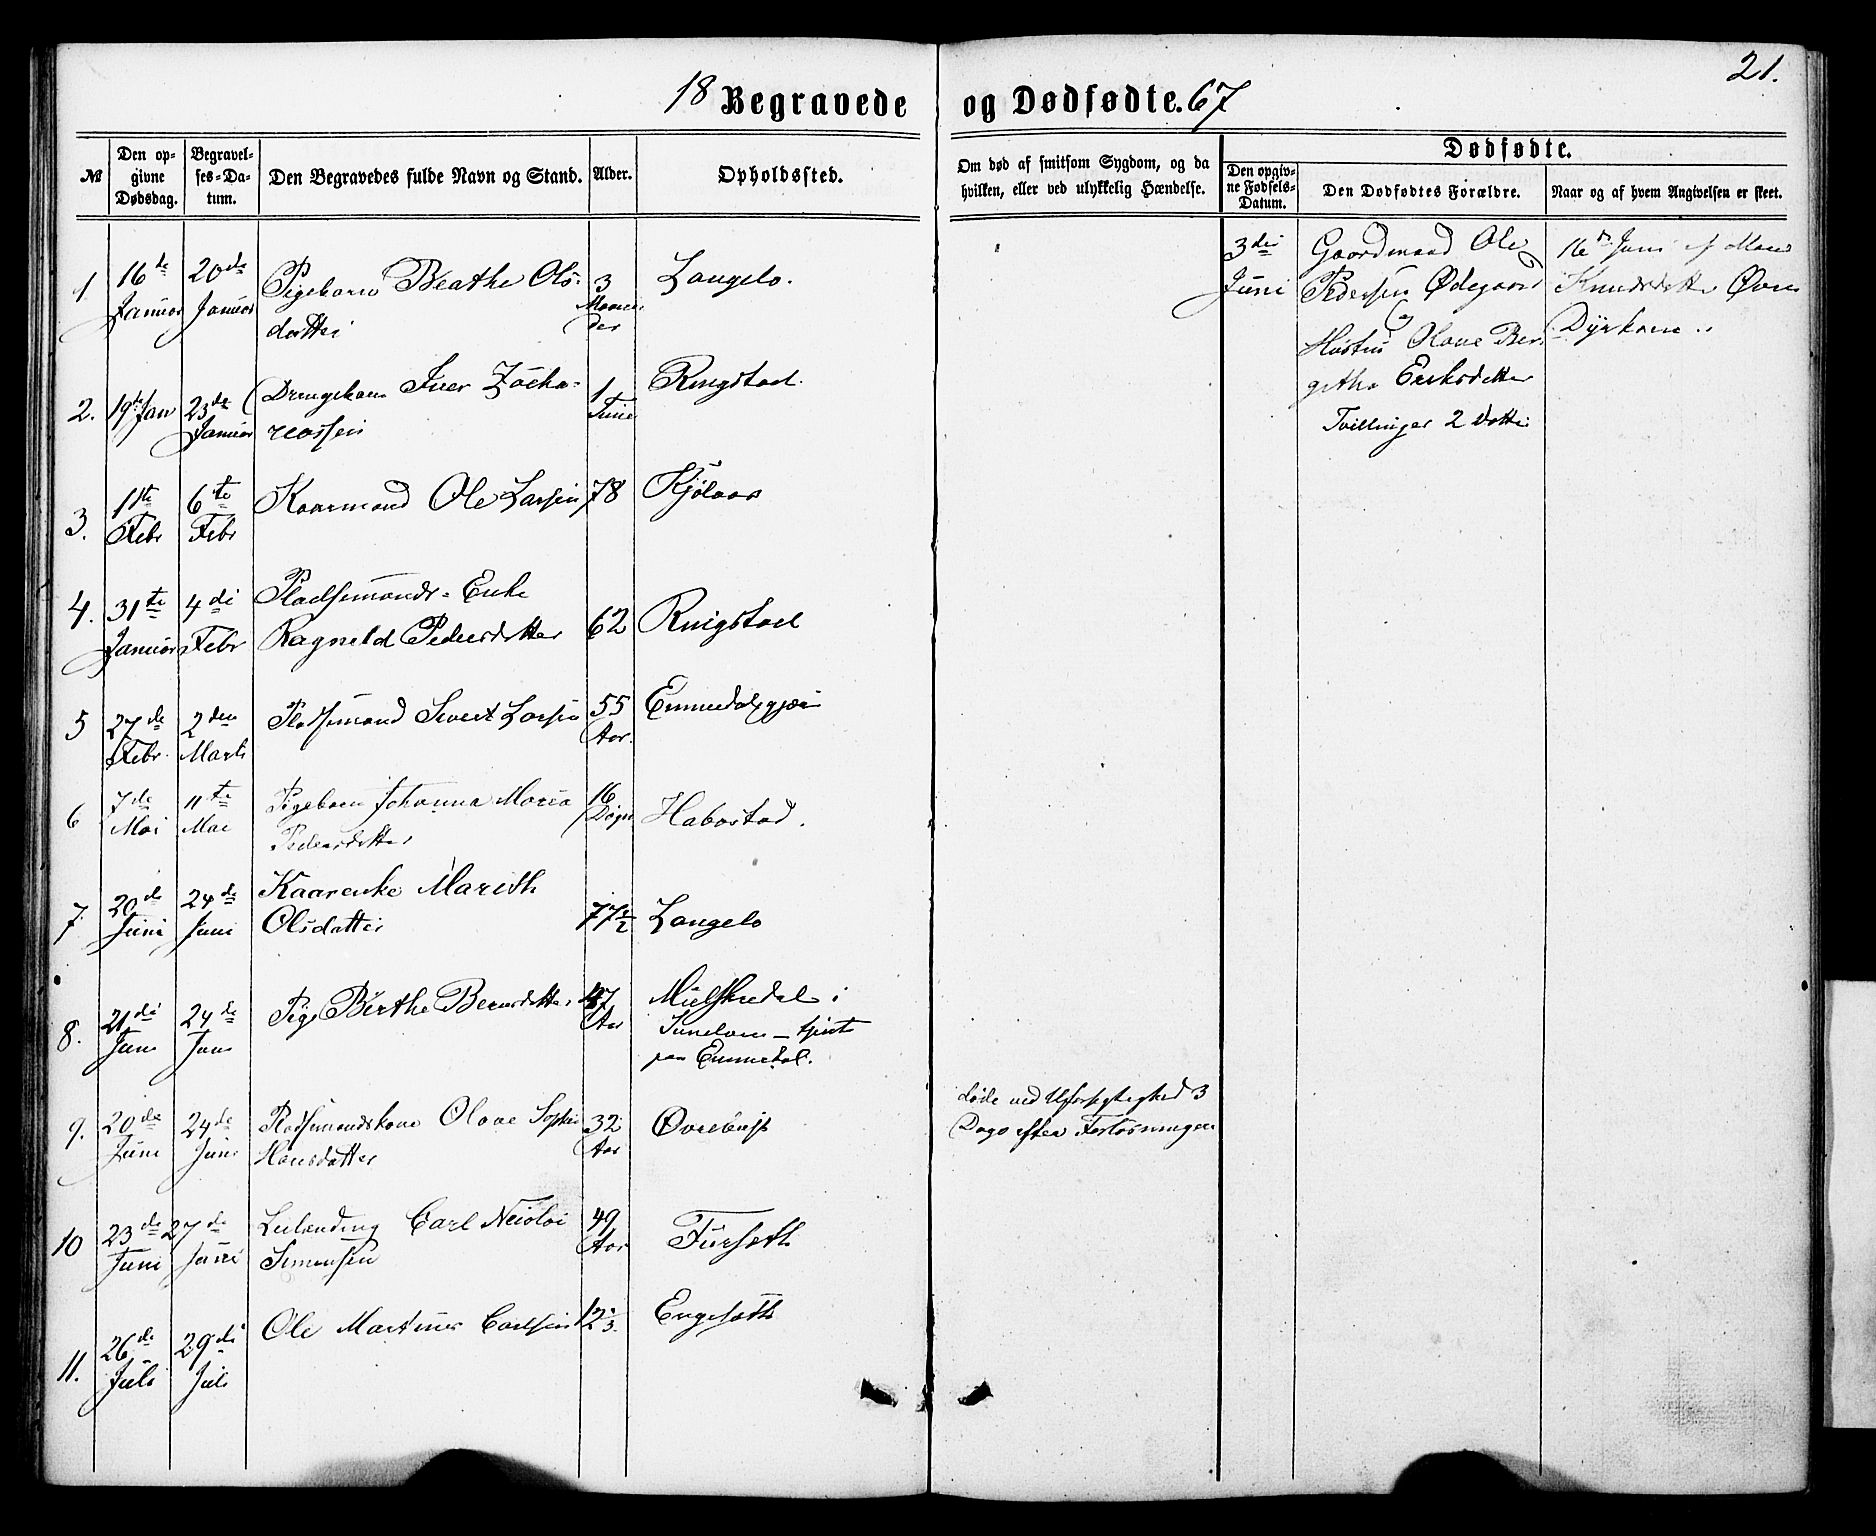 18 Begravede og Dødfødte. 67
21.
№
Den op-
givne
Dødsdag.
Begravel-
ses-Da-
tum.
Den Begravedes fulde Navn og Stand.
Alder.
Opholdssted.
Om død af smitsom Sygdom, og da
hvilken, eller ved ulykkelig Hændelse.
Dødfødte.
Den opgiv-
ne Fødsels-
Datum.
Den Dødfødtes Forældre.
Naar og af hvem Angivelsen er skeet.
1. 16de Januar 20de Januar Pigebarn Beathe Ols-
datter
3 Maaneder
Langelo.
2. 19de Jan 23de Januar Drengebarn Iver Zacha-
riassen
1 Time
Ringstad.
3. 1ste Febr 6te Febr Kaarmand Ole Larsen 78 Kjølaas
4. 31te Januar 4de Febr Pladsmands-Enke
Ragnild Pedersdatter 62 Ringstad
5 27de Febr. 2den Marts Pladsmand Sivert Larsen 55 Aar.
6 7de Mai 11te Mai Pigebarn Johanna Maria
Pedersdatter
16 Døgn
Habostad.
7. 20de Juni 24de Juni Kaarenke Marith
Olsdatter
77½ Langelo
8. 21de Juni 24de Juni Pige Berthe Berntsdatter 47 Aar
i
Sunelven - tjente
paa Emmedal.
9. 20de Juni 24de Juni Pladsmandskone Olave Sophie
Hansdatter
32 Aar
døde ved Uforsigtighed 3
Dage efter Forløsningen
10 23de Juni 27de Juni Leilænding Carl Nicolai
Simensen
49 Aar
Furseth
11. 26de Juli 29de Juli Ole Martinus Carlsen Engeseth
3die Juni
Gaardmand Ole
Pedersen Ødegaard
og
Hustru Olave Ber-
githa Eriksdatter
Tvillinger 2 Døttre
16de Juni af
Knudsdatter Øvre
Dyrkorn.